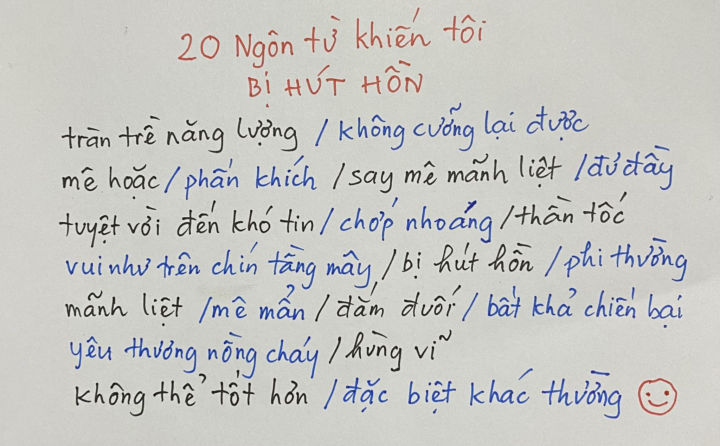 20 Ngôn từ khiến tôi
BỊ HÚT HỒN
tràn trề năng lượng / không cưỡng lại được
mê hoặc / phấn khích / say mê mãnh liệt / đủ đầy
tuyệt vời đến khó tin / chớp nhoáng / thần tốc
vui như trên chín tầng mây / bị hút hồn / phi thường
mãnh liệt / mê mẩn / đằm đuối / bất khả chiến bại
yêu thương nồng cháy / hùng vĩ
không thể tốt hơn / đặc biệt khác thường